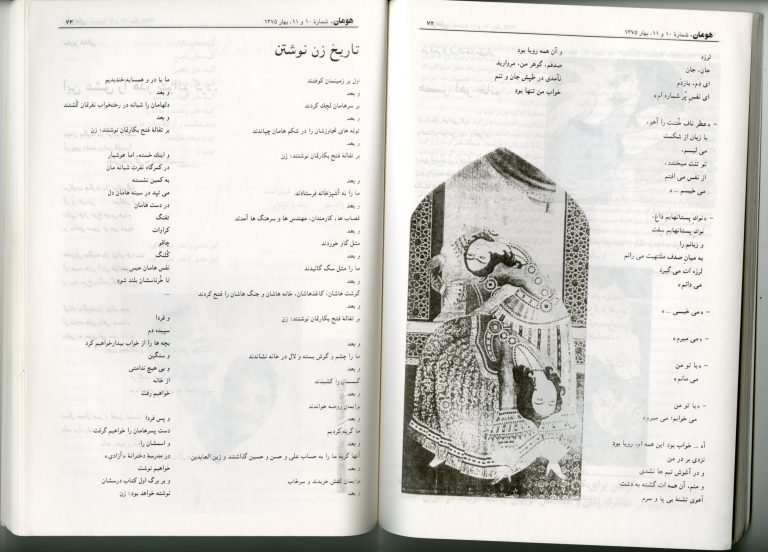 هومان، شمارۀ ۱۰ و ۱۱، بهار ۱۳۷۵
۷۲
لرزه
جان، جان
ای دَم، بازدَم
ای نفس پُر شماره ام»
- «عطر ناف خُتنت را آهو،
با زبان از شکست
می لیسم.
تو تنت میخندد،
از نفس می افتم
می خیسم ...»
- «نوك پستانهایم داغ،
نوك پستانهایم سِفت
و زبانم را
به میان صدف ملتهبت می رانم
لرزه ات می گیرد
می دانم»
- «می خیسی ...»
- «می میرم»
- «با تو من
می مانم»
- «با تو من
می خوانم: می میرم»
آه ... خواب بود این همه ام، رویا بود
نزدی بر در من
و در آغوش تبم جا نشدی
و منم، آن همه ات گشته به دشت
آهوی تشنۀ بی پا و سرم
و آن همه رویا بود
صدفم، گوهر من، مروارید
نآمدی در طپش جان و تنم
خواب من تنها بود
هومان، شمارۀ ۱۰ و ۱۱، بهار ۱۳۷۵
۷۳
تاریخ زن نوشتن
اول بر زمینمان کوفتند
و بعد
بر سرهامان لچك کردند
و بعد
توله های تجاوزشان را در شکم هامان چپاندند
و بعد
بر تفالۀ فتح بکارتمان نوشتند: زن
و بعد
ما را به آشپزخانه فرستادند
و بعد
قصاب ها، کارمندان، مهندس ها و سرهنگ ها آمدند
و بعد
مثل گاو خوردند
و بعد
ما را مثل سگ گائیدند
و بعد
گوشت هاشان، کاغذهاشان، خانه هاشان و جنگ هاشان را فتح کردند
و بعد
بر تفالۀ فتح بکارتمان نوشتند: زن
و بعد
ما را چشم و گوش بسته و لال در خانه نشاندند
و بعد
گیسمان را کشیدند
و بعد
برایمان روضه خواندند
و بعد
ما گریه کردیم
و بعد
آنها گریۀ ما را به حساب علی و حسن و حسین گذاشتند و زین العابدین
و بعد
برایمان کفش خریدند و سرخاب
و بعد
ما با در و همسایه خندیدیم
و بعد
دلهامان را شبانه در رختخواب نفرتمان کُشتند
و بعد
بر تفالۀ فتح بکارتمان نوشتند: زن
و اینك خسته، اما هوشیار
در کمرگاه نفرت شبانه مان
به کمین نشسته
می تپد در سینه هامان دل
در دست هامان
تفنگ
کراوات
چاقو
کُلنگ
نفس هامان حبس
تا خُرناسشان بلند شود
...
و فردا
سپیده دم
بچه ها را از خواب بیدارخواهیم کرد
و سنگین
و بی هیچ ندامتی
از خانه
خواهیم رفت
و پس فردا
دست پسرهامان را خواهیم گرفت
و اسممان را
در مدرسۀ دخترانۀ «آزادی»
خواهیم نوشت
و بر برگ اول کتاب درسشان
نوشته خواهد بود: زن